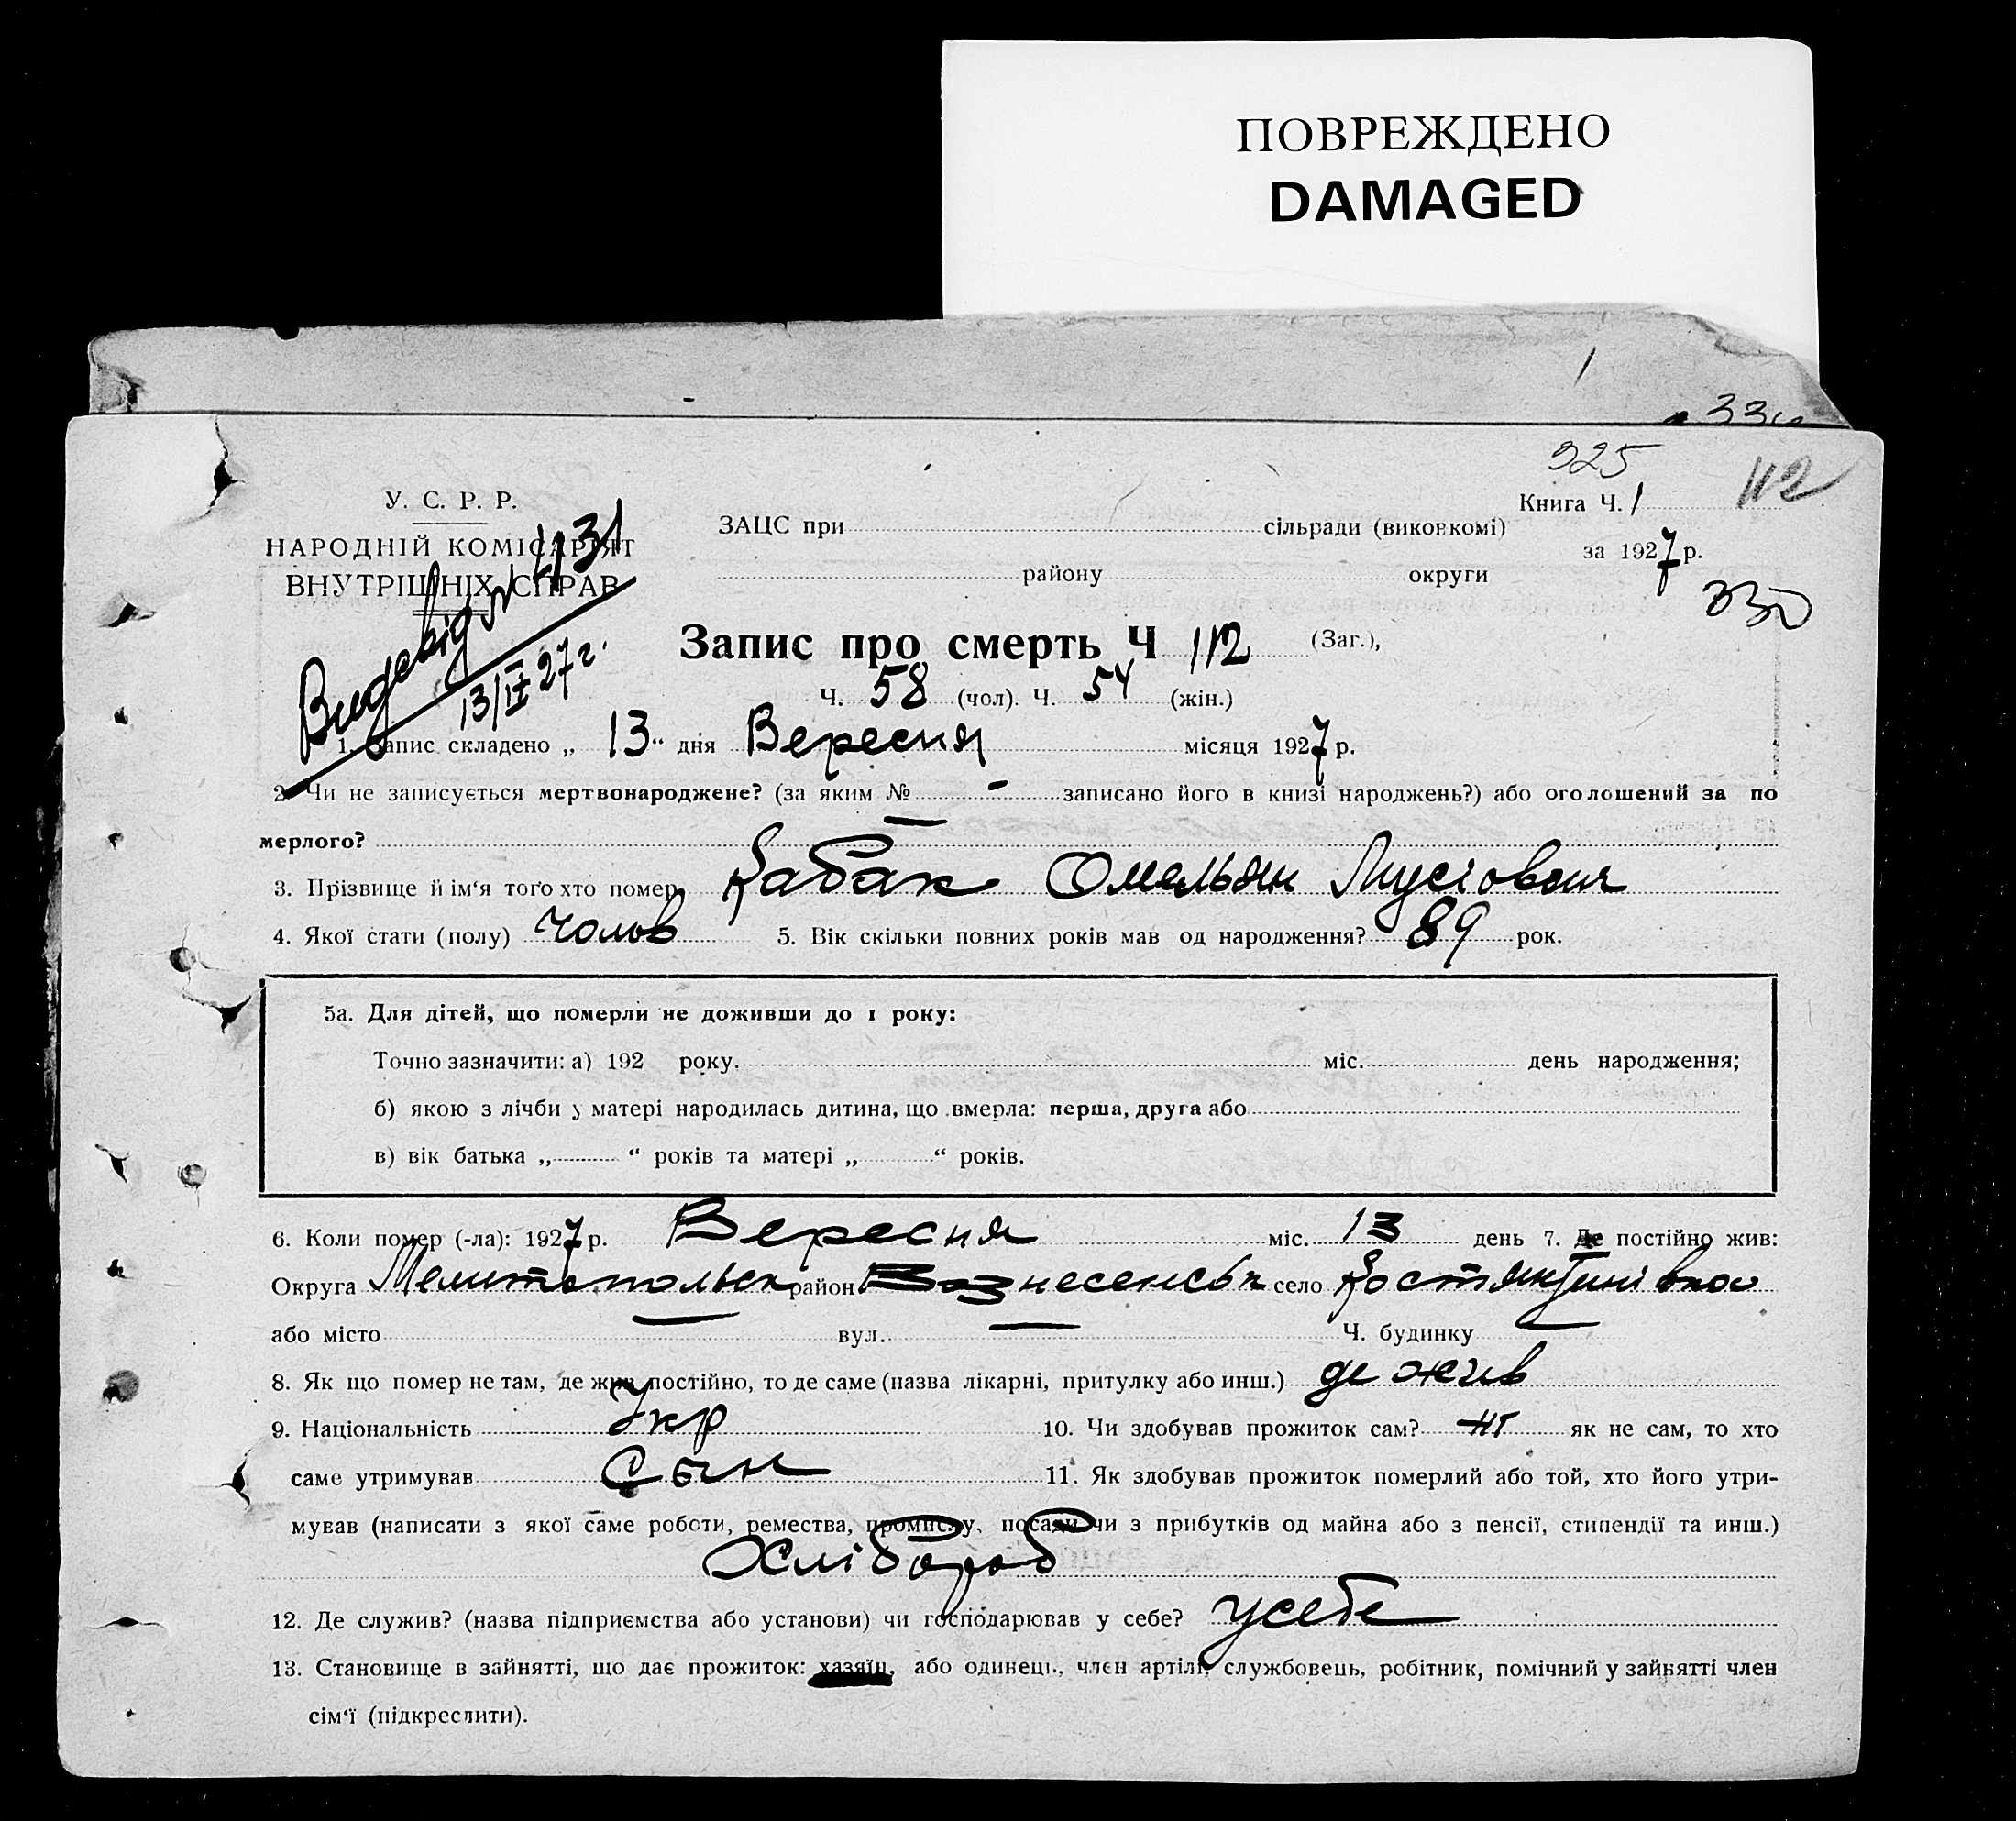 ПОВРЕЖДЕНО
DAMAGED
1
325
112
У. С. Р. Р.
НАРОДНІЙ КОМІСАРІЯТ
ВНУТРІШНІХ СПРАВ
13/IX 27 г.
ЗАЦС при сільради (виконкомі)
району округи
Книга Ч. 1
за 1927 р.
330
Запис про смерть Ч 112 (Заг.),
Ч. 58 (чол). Ч. 54 (жін.)
1. Запис складено „ 13 “ дня Вересня місяця 1927 р.
2. Чи не записується мертвонароджене? (за яким № - записано його в книзі народжень?) або оголошений за по
мерлого? —
3. Прізвище й ім‘я того хто помер Кабак Омельян Мусіович
4. Якої стати (полу) чолов 5. Вік скільки повних років мав од народження? 89 рок.
5а. Для дітей, що померли не доживши до 1 року:
Точно зазначити: а) 192 року. міс. день народження;
б) якою з лічби у матері народилась дитина, що вмерла: перша, друга або
в) вік батька „ “ років та матері „ “ років.
6. Коли помер (-ла): 1927 р. Вересня міс. 13 день 7. Де постійно жив:
Округа Мелітопольськ район Вознесенськ село Костянтинівка
або місто — вул. — Ч. будинку —
8. Як що помер не там, де жив постійно, то де саме (назва лікарні, притулку або инш.) де жив
9. Національність Укр 10. Чи здобував прожиток сам? як не сам, то хто
саме утримував Сын 11. Як здобував прожиток померлий або той, хто його утри-
мував (написати з якої саме роботи, ремества, промислу, посади чи з прибутків од майна або з пенсії, стипендії та инш.)
Хлібороб
12. Де служив? (назва підприємства або установи) чи господарював у себе? усебе
13. Становище в зайнятті, що дає прожиток: хазяїн, або одинець, член артілі, службовець, робітник, помічний у зайнятті член
сім‘ї (підкреслити).